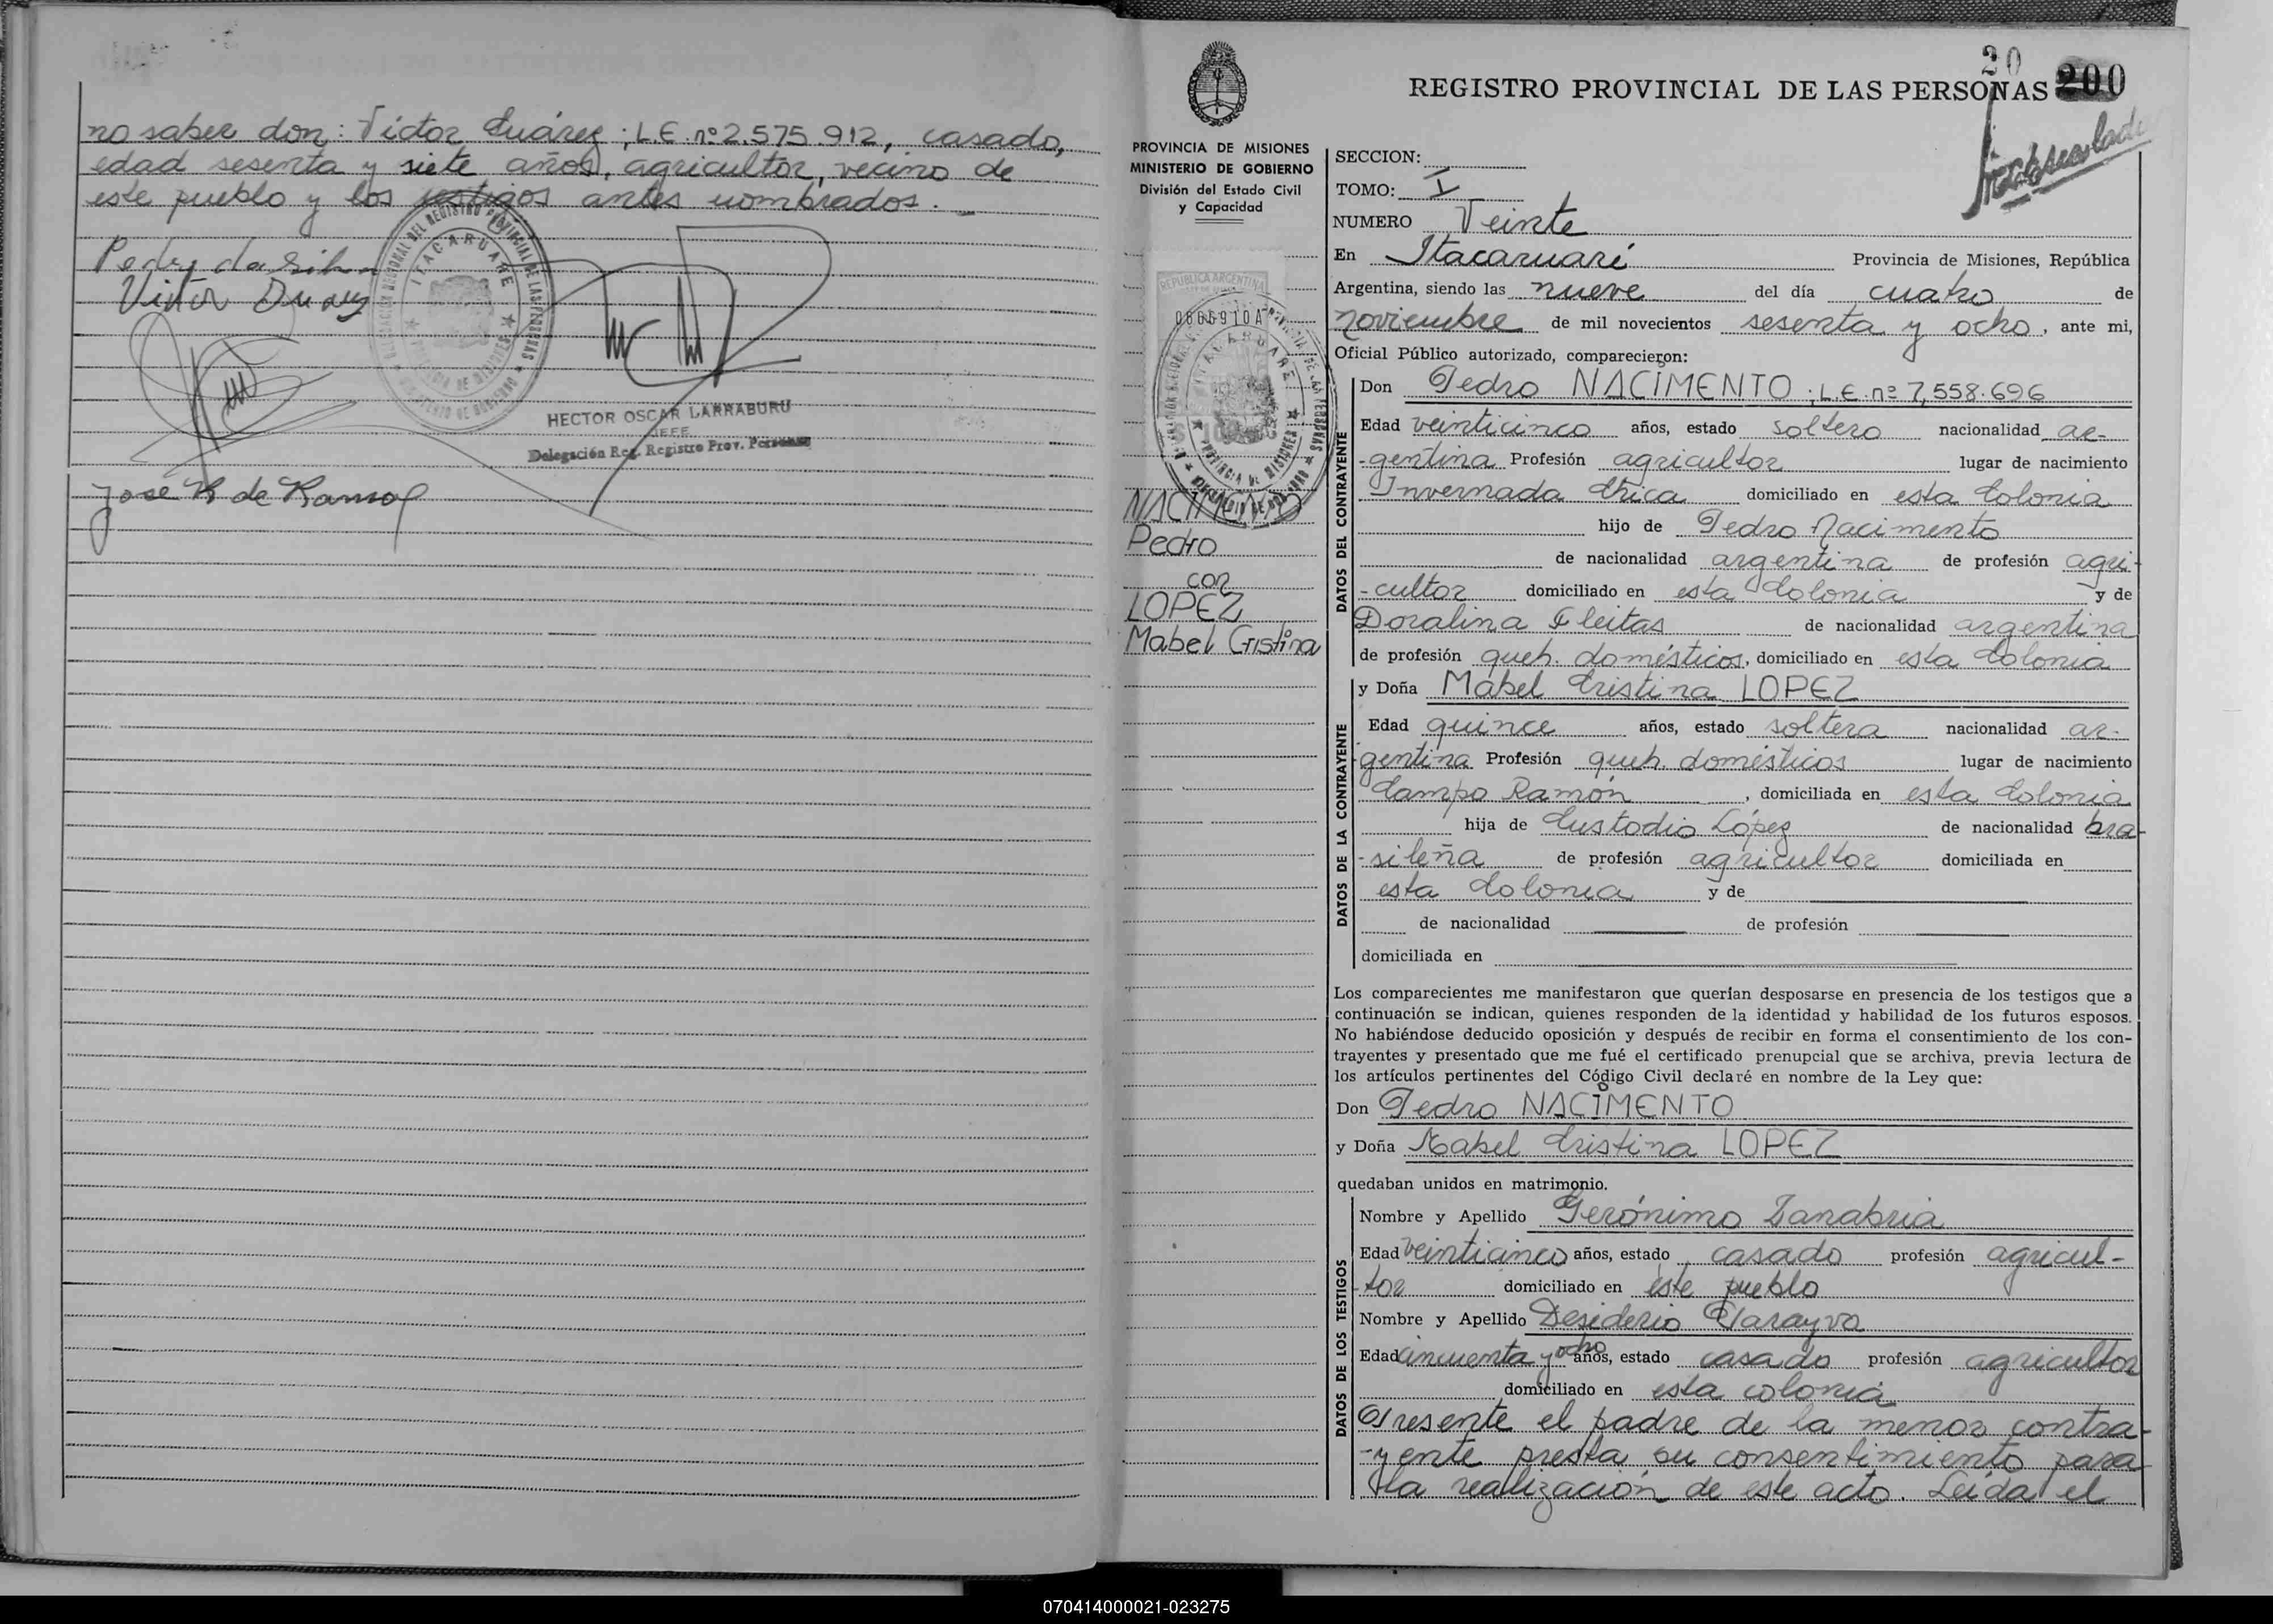 no saber don: Victor Suárez; L.E. nº 2.575.912, casado,
edad sesenta y siete años, agricultor, vecino de
este pueblo y los testigos antes nombrados.
Victor Suarez
HECTOR OSCAR LARRABURU
JEFE
Delegación Reg. Registro Prov. Personas
Jose R de Ramos
20
REGISTRO PROVINCIAL DE LAS PERSONAS 200
PROVINCIA DE MISIONES
MINISTERIO DE GOBIERNO
División del Estado Civil
y Capacidad
REPUBLICA ARGENTINA
0866910A
NACIMENTO
Pedro
con
LOPEZ
Mabel Cristina
SECCION:
TOMO: I
NUMERO Veinte
En Itacaruaré Provincia de Misiones, República
Argentina, siendo las nueve del día cuatro de
noviembre de mil novecientos sesenta y ocho, ante mi,
Oficial Público autorizado, comparecieron:
DATOS DEL CONTRAYENTE
Don Pedro NACIMENTO; L.E. nº 7,558.696
Edad veinticinco años, estado soltero nacionalidad ar-
-gentina Profesión agricultor lugar de nacimiento
Invernada Chica domiciliado en esta Colonia
hijo de Pedro Nacimento
de nacionalidad argentina de profesión agri-
-cultor domiciliado en esta Colonia y de
Doralina Fleitas de nacionalidad argentina
de profesión queh. domésticos, domiciliado en esta Colonia
DATOS DE LA CONTRAYENTE
y Doña Mabel Cristina LOPEZ
Edad quince años, estado soltera nacionalidad ar-
-gentina Profesión queh. domésticos lugar de nacimiento
Campo Ramón, domiciliada en esta Colonia
hija de Custodio López de nacionalidad bra-
-sileña de profesión agricultor domiciliada en
esta Colonia y de
de nacionalidad de profesión
domiciliada en
Los comparecientes me manifestaron que querían desposarse en presencia de los testigos que a
continuación se indican, quienes responden de la identidad y habilidad de los futuros esposos.
No habiéndose deducido oposición y después de recibir en forma el consentimiento de los con-
trayentes y presentado que me fué el certificado prenupcial que se archiva, previa lectura de
los artículos pertinentes del Código Civil declaré en nombre de la Ley que:
Don Pedro NACIMENTO
y Doña Mabel Cristina LOPEZ
quedaban unidos en matrimonio.
DATOS DE LOS TESTIGOS
Nombre y Apellido Gerónimo Zanabria
Edad veinticinco años, estado casado profesión agricul-
-tor domiciliado en este pueblo
Nombre y Apellido Desiderio
Edad cincuenta y ocho años, estado casado profesión agricultor
domiciliado en esta colonia
Presente el padre de la menor contra-
-yente presta su consentimiento para
la realización de este acto. Leída el
070414000021-023275